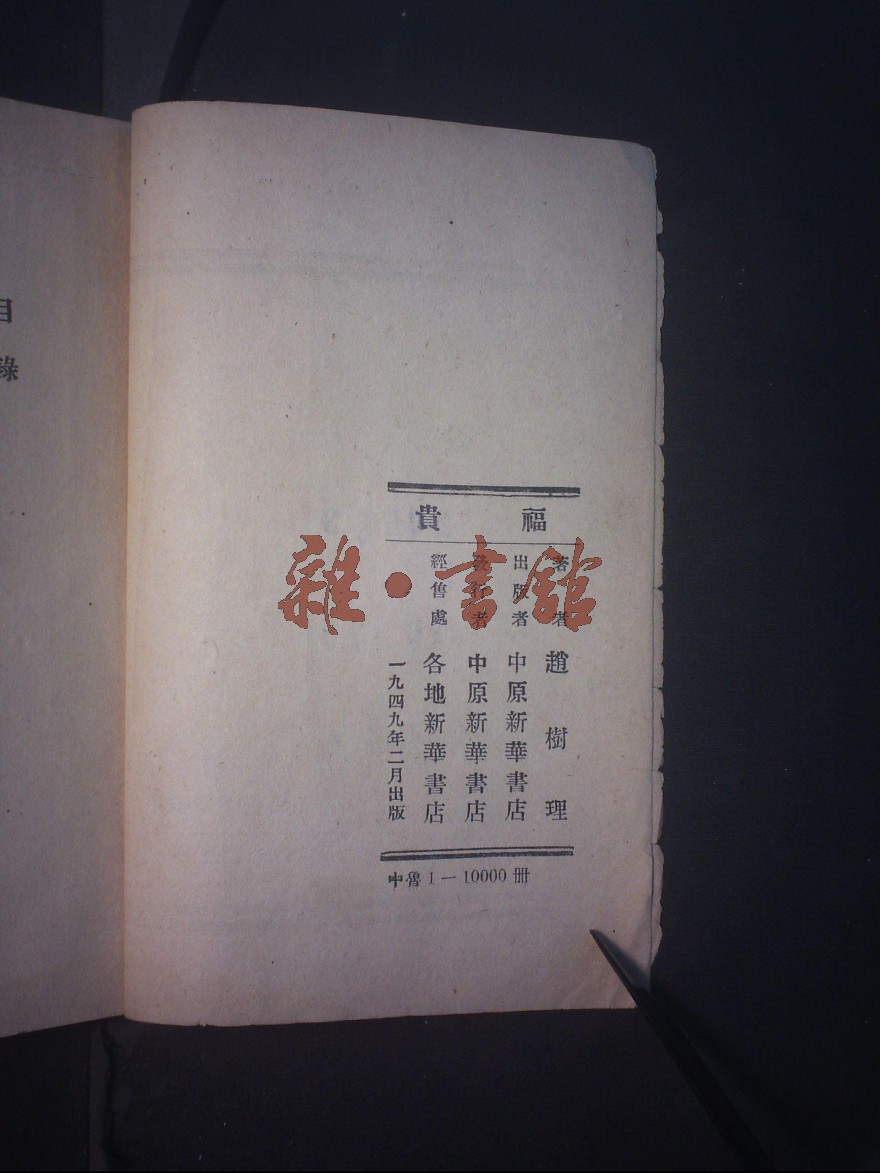 福貴
著者 趙樹理
出版者 中原新華書店
發行者 中原新華書店
經售處 各地新華書店
一九四九年二月出版
中魯 1—10000 册
目錄
雜·書館